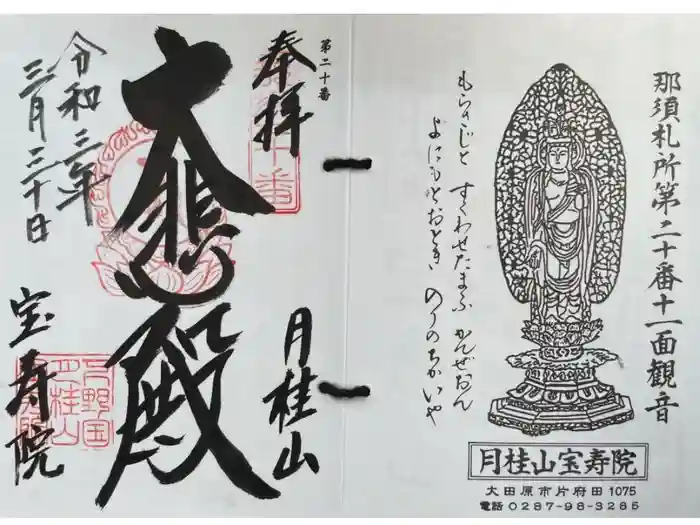 那須札所第二十番十一面観音
もらさじと すくわせたまふ かんぜおん
よにもとおとき のりのちかいや
月桂山宝寿院
大田原市片府田1075
電話0287-98-3285
第二十番
奉拝
月桂山
大悲殿
令和三年
三月三十日
宝寿院